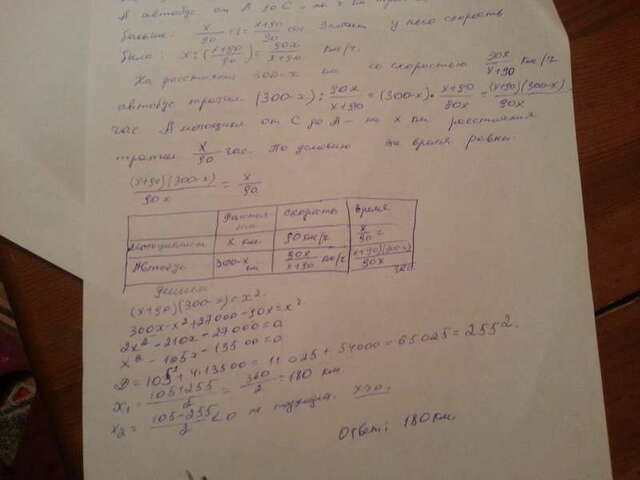 А автобус от А до С - на
больше: x/90 + 1 = (x+90)/90 час. Значит у него скорость
была: x : ((x+90)/90) = 90x/(x+90) км/ч.
На расстояние 300-x км со скоростью 90x/(x+90) км/ч
автобус тратил (300-x) : 90x/(x+90) = (300-x) · (x+90)/90x = (x+90)(300-x)/90x
час. А мотоцикл от С до А - на x км расстояния
тратил x/90 час. По условию эти время равны.
(x+90)(300-x)/90x = x/90
Расстояние скорость время
мотоциклист x км 90 км/ч x/90 ч
Автобус 300-x км 90x/(x+90) км/ч (x+90)(300-x)/90x час
решим
(x+90)(300-x) = x²
300x-x²+27000-90x=x²
2x²-210x-27000=0
x²-105x-13500=0
D=105²+4·13500=11025+54000=65025=255².
x₁=(105+255)/2=360/2=180 км
x₂=(105-255)/2<0 не подходит. x>0.
Ответ: 180 км